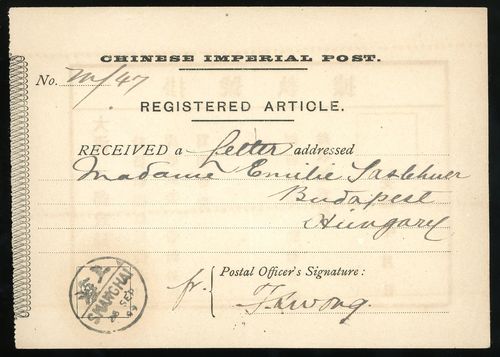 CHINESE IMPERIAL POST.
No. m/47
REGISTERED ARTICLE.
RECEIVED a Letter addressed
Madame Emilie
Budapest
Hungary
上海
SHANGHAI
26 SEP 99
Postal Officer's Signature:
fr. T. Kwong